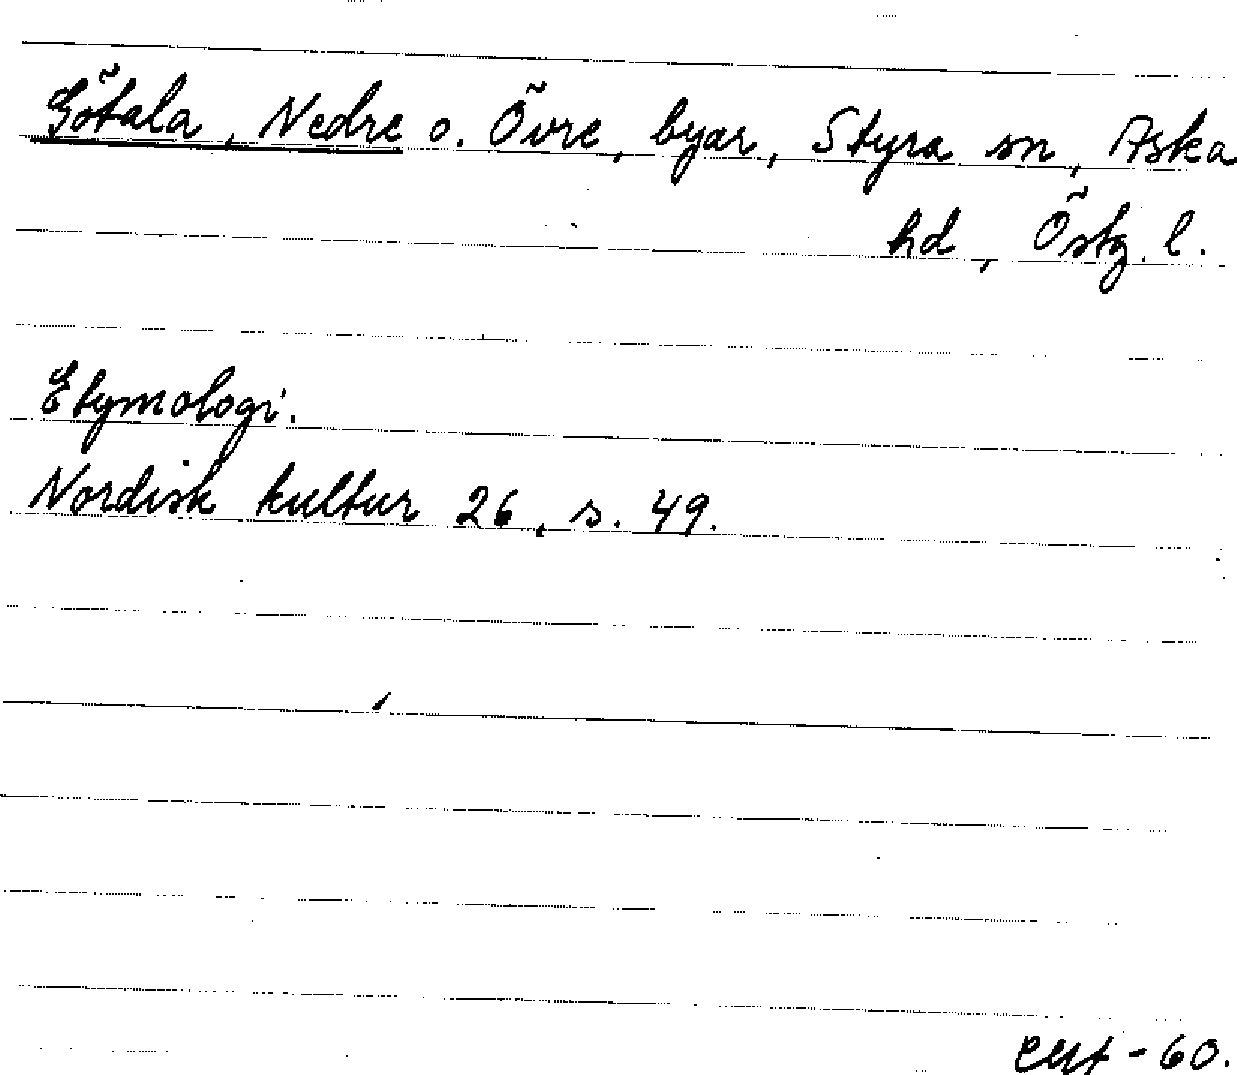 Götala, Nedre o. Övre, byar, Styra sn, Aska
hd, Östg. l.
Etymologi.
Nordisk kultur 26, s. 49.
-60.